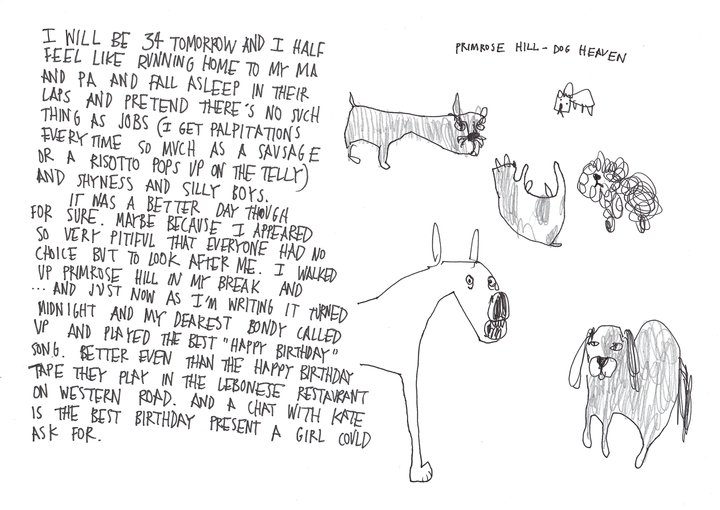 I WILL BE 34 TOMORROW AND I HALF
FEEL LIKE RUNNING HOME TO MY MA
AND PA AND FALL ASLEEP IN THEIR
LAPS AND PRETEND THERE'S NO SUCH
THING AS JOBS (I GET PALPITATIONS
EVERY TIME SO MUCH AS A SAUSAGE
OR A RISOTTO POPS UP ON THE TELLY)
AND SHYNESS AND SILLY BOYS.
IT WAS A BETTER DAY THOUGH
FOR SURE. MAYBE BECAUSE I APPEARED
SO VERY PITIFUL THAT EVERYONE HAD NO
CHOICE BUT TO LOOK AFTER ME. I WALKED
UP PRIMROSE HILL IN MY BREAK AND
... AND JUST NOW AS I'M WRITING IT TURNED
MIDNIGHT AND MY DEAREST BONDY CALLED
UP AND PLAYED THE BEST "HAPPY BIRTHDAY"
SONG. BETTER EVEN THAN THE HAPPY BIRTHDAY
TAPE THEY PLAY IN THE LEBONESE RESTAURANT
ON WESTERN ROAD. AND A CHAT WITH KATE
IS THE BEST BIRTHDAY PRESENT A GIRL COULD
ASK FOR.
PRIMROSE HILL - DOG HEAVEN